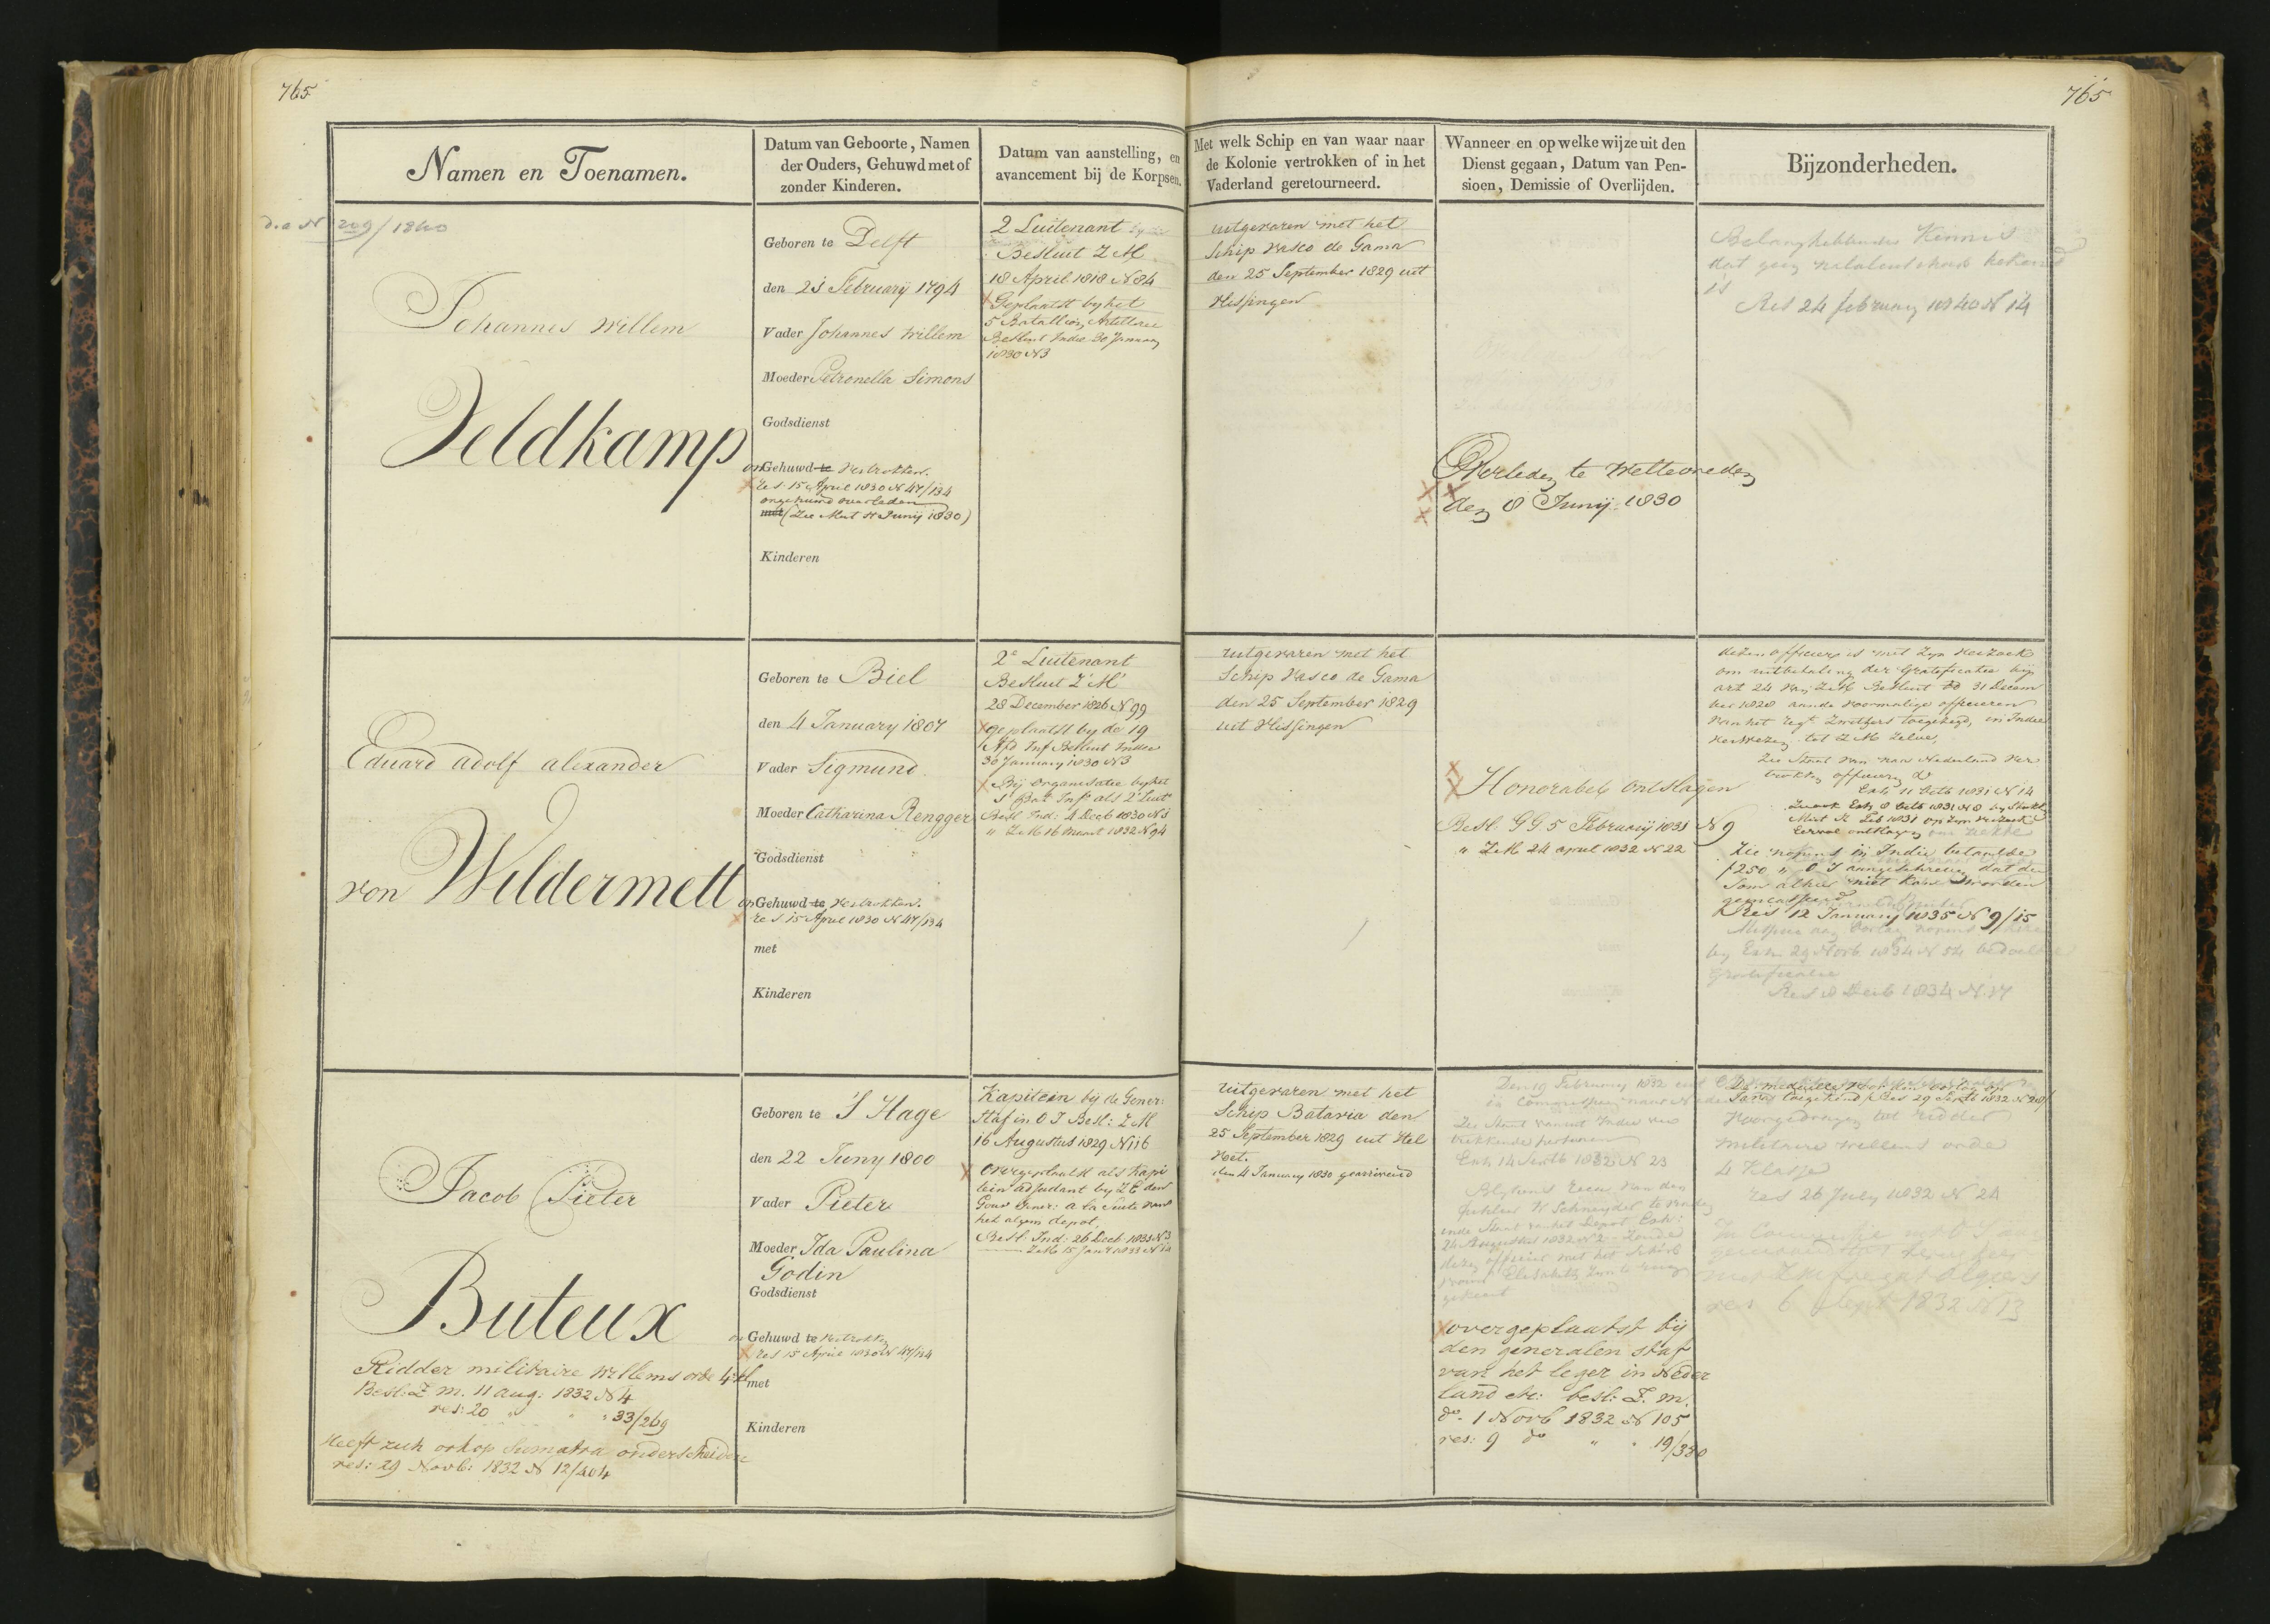 765
765
Namen en Toenamen.
Datum van Geboorte, Namen
der Ouders, Gehuwd met of
zonder Kinderen.
Datum van aanstelling, en
avancement bij de Korpsen.
Met welk Schip en van waar naar
de Kolonie vertrokken of in het
Vaderland geretourneerd.
Wanneer en op welke wijze uit den
Dienst gegaan, Datum van Pen-
sioen, Demissie of Overlijden.
Bijzonderheden.
209/1840
Johannes Willem
Veldkamp
Geboren te Delft
den 21 February 1794
Vader Johannes Willem
Moeder Petronella Simons
Godsdienst
on Gehuwd te vertrokken.
Res. 15 April 1830 N 47/134
ongehuwd overleden
met (Zie Mut Junij 1830)
Kinderen
2 Luitenant
Besluit Z M
18 April 1818 N 84
Geplaatst by het
5 Bataillon Artillerie
Besluit Indie 30 January
1830 N 3
uitgevaren met het
Schip Vasco de Gama
den 25 September 1829 uit
Vlissingen
Overleden te Weltevreden
den 8 Junij 1830
Belanghebbende Kennis
dat geen nalatenschap bekend
is
Res 24 february 1840 N 14
Eduard adolf alexander
von Wildermett
Geboren te Biel
den 4 January 1807
Vader Sigmund
Moeder Catharina Rengger
Godsdienst
on Gehuwd te vertrokken.
Res 15 April 1830 N 47/134
met
Kinderen
2e Luitenant
Besluit Z M
28 December 1826 N 99
geplaatst by de 19
Afd Inf Besluit Indie
30 January 1830 N 3
Bij organisatie by het
1 Bat Inf als 2 Luit
Besl Ind: 4 Decb 1830 N 1
" Z M 16 Maart 1832 N 94
uitgevaren met het
Schip Vasco de Gama
den 25 September 1829
uit Vlissingen
Honorabel ontslagen
Besl. GG. 5 February 1831 N 9
" Z M 24 april 1832 N 22
dezen officier is met zyn verzoek
om uitbetaling der Gratificatie bij
art 24 van Z M Besluit 31 Decem
ber 1828 aan de voormalige officieren
van het regt Zwitsers toegelegd, in Indie
verwezen tot Z M Zelve.
Zie Staat van naar Nederland ver
trokken officieren
Exh 11 Octb 1831 N 14
Exh 8 Octb 1831 N 8
Eervol ontslagen
Zie nopens in Indie betaalde
f 250 " O I aangeschreven dat de
Som alhier niet kan worden
Res 12 January 1835 N 9/15
by Exh 29 Novb 1834 N 54 bedoelde
gratificatie
Res 8 Decb 1834 N 17
Jacob Pieter
Buteux
Ridder militaire Willems orde 4 kl
Besl: Z. M. 11 aug: 1832 N 4
res: 20 " " 33/269
Heeft zich ook op Sumatra onderscheiden
res: 29 Novb: 1832 N 12/404
Geboren te 'S Hage
den 22 Juny 1800
Vader Pieter
Moeder Ida Paulina
Godin
Godsdienst
on Gehuwd te vertrokken
Res 15 April 1830 N 47/134
met
Kinderen
Kapitein bij de Gener:
Staf in O I Besl: Z M
16 Augustus 1829 N 116
Overgeplaatst als Kapi
tein adjudant by Z E den
Gouv Gener: a la Suite van
het algem depot.
Besl: Ind: 26 Decb 1831 N 3
Z M 15 Jany 1833 N 14
uitgevaren met het
Schip Batavia den
25 September 1829 uit Hel
voet.
den 4 January 1830 gearriveerd
Den 19 February 1832
in Commissie naar Nederland
Zie Staat van uit Indie ver
trekkende personen
Exh 14 Septb 1832 N 23
inde Staat van het Depot Exh:
24 Augustus 1832 N 2
dezen officier met het Schip
gekeerd
overgeplaatst bij
den generalen staf
van het leger in Neder
land etc: besl: Z. M.
do. 1 Novb 1832 N 105
res: 9 do " " 19/380
De medaille voor den oorlog op
Java toegekend Res 29 Septb 1832
Voorgedragen tot ridder
militaire willems orde
4 Klasse
Res 26 July 1832 N 24
res 6 Sept 1832 N 13